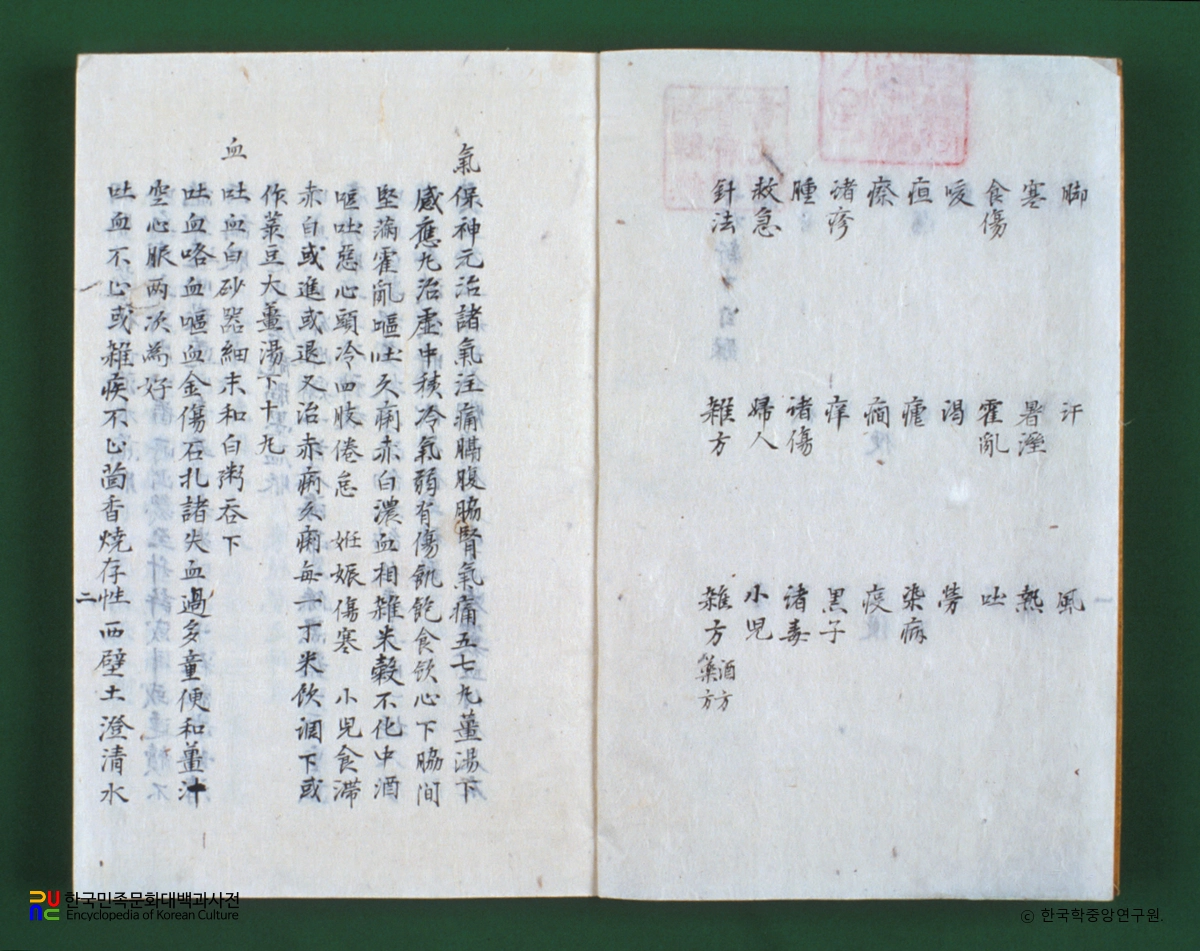 脚 汗 風
寒 暑溼 熱
食傷 霍亂 吐
咳 渴 勞
疸 瘧 染病
瘵 癎 疫
諸疹 痒 黑子
腫 諸傷 諸毒
救急 婦人 小児
針法 雜方 雜方 酒方 藥方
氣 保神元治諸氣注痛膈腹脇腎氣痛五七九薑湯下
感應九治虛中積冷氣弱有傷飢飽食飮心下脇間
堅滿霍亂嘔吐久痢赤白濃血相雜米穀不化中酒
嘔吐惡心頭冷四肢倦怠 姙娠傷寒 小児食滯
赤白或進或退又治赤痢久痢每一丁米飮調下或
作菉豆大薑湯下十九
血 吐血白砂器細末和白粥吞下
吐血咯血嘔血金傷石扎諸失血過多童便和薑汁
空心服两次為好
吐血不止或雜疾不止茴香燒存性西壁土澄清水
二
한국민족문화대백과사전
Encyclopedia of Korean Culture
© 한국학중앙연구원.